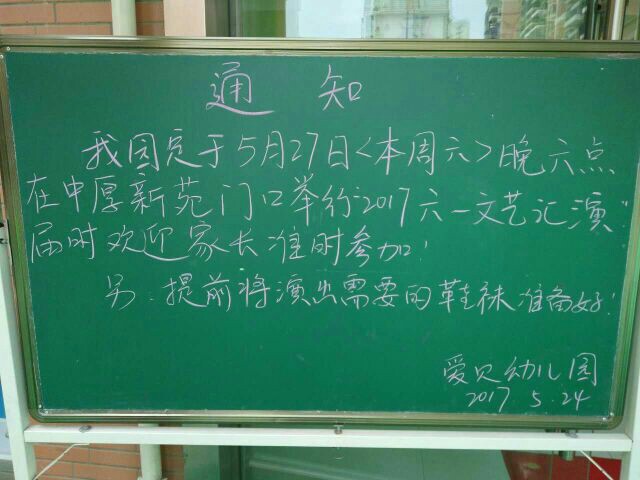 通知
我园定于5月27日<本周六>晚六点
在中厚新苑门口举行“2017六一文艺汇演”
届时欢迎家长准时参加!
另:提前将演出需要的鞋袜准备好!
爱贝幼儿园
2017.5.24